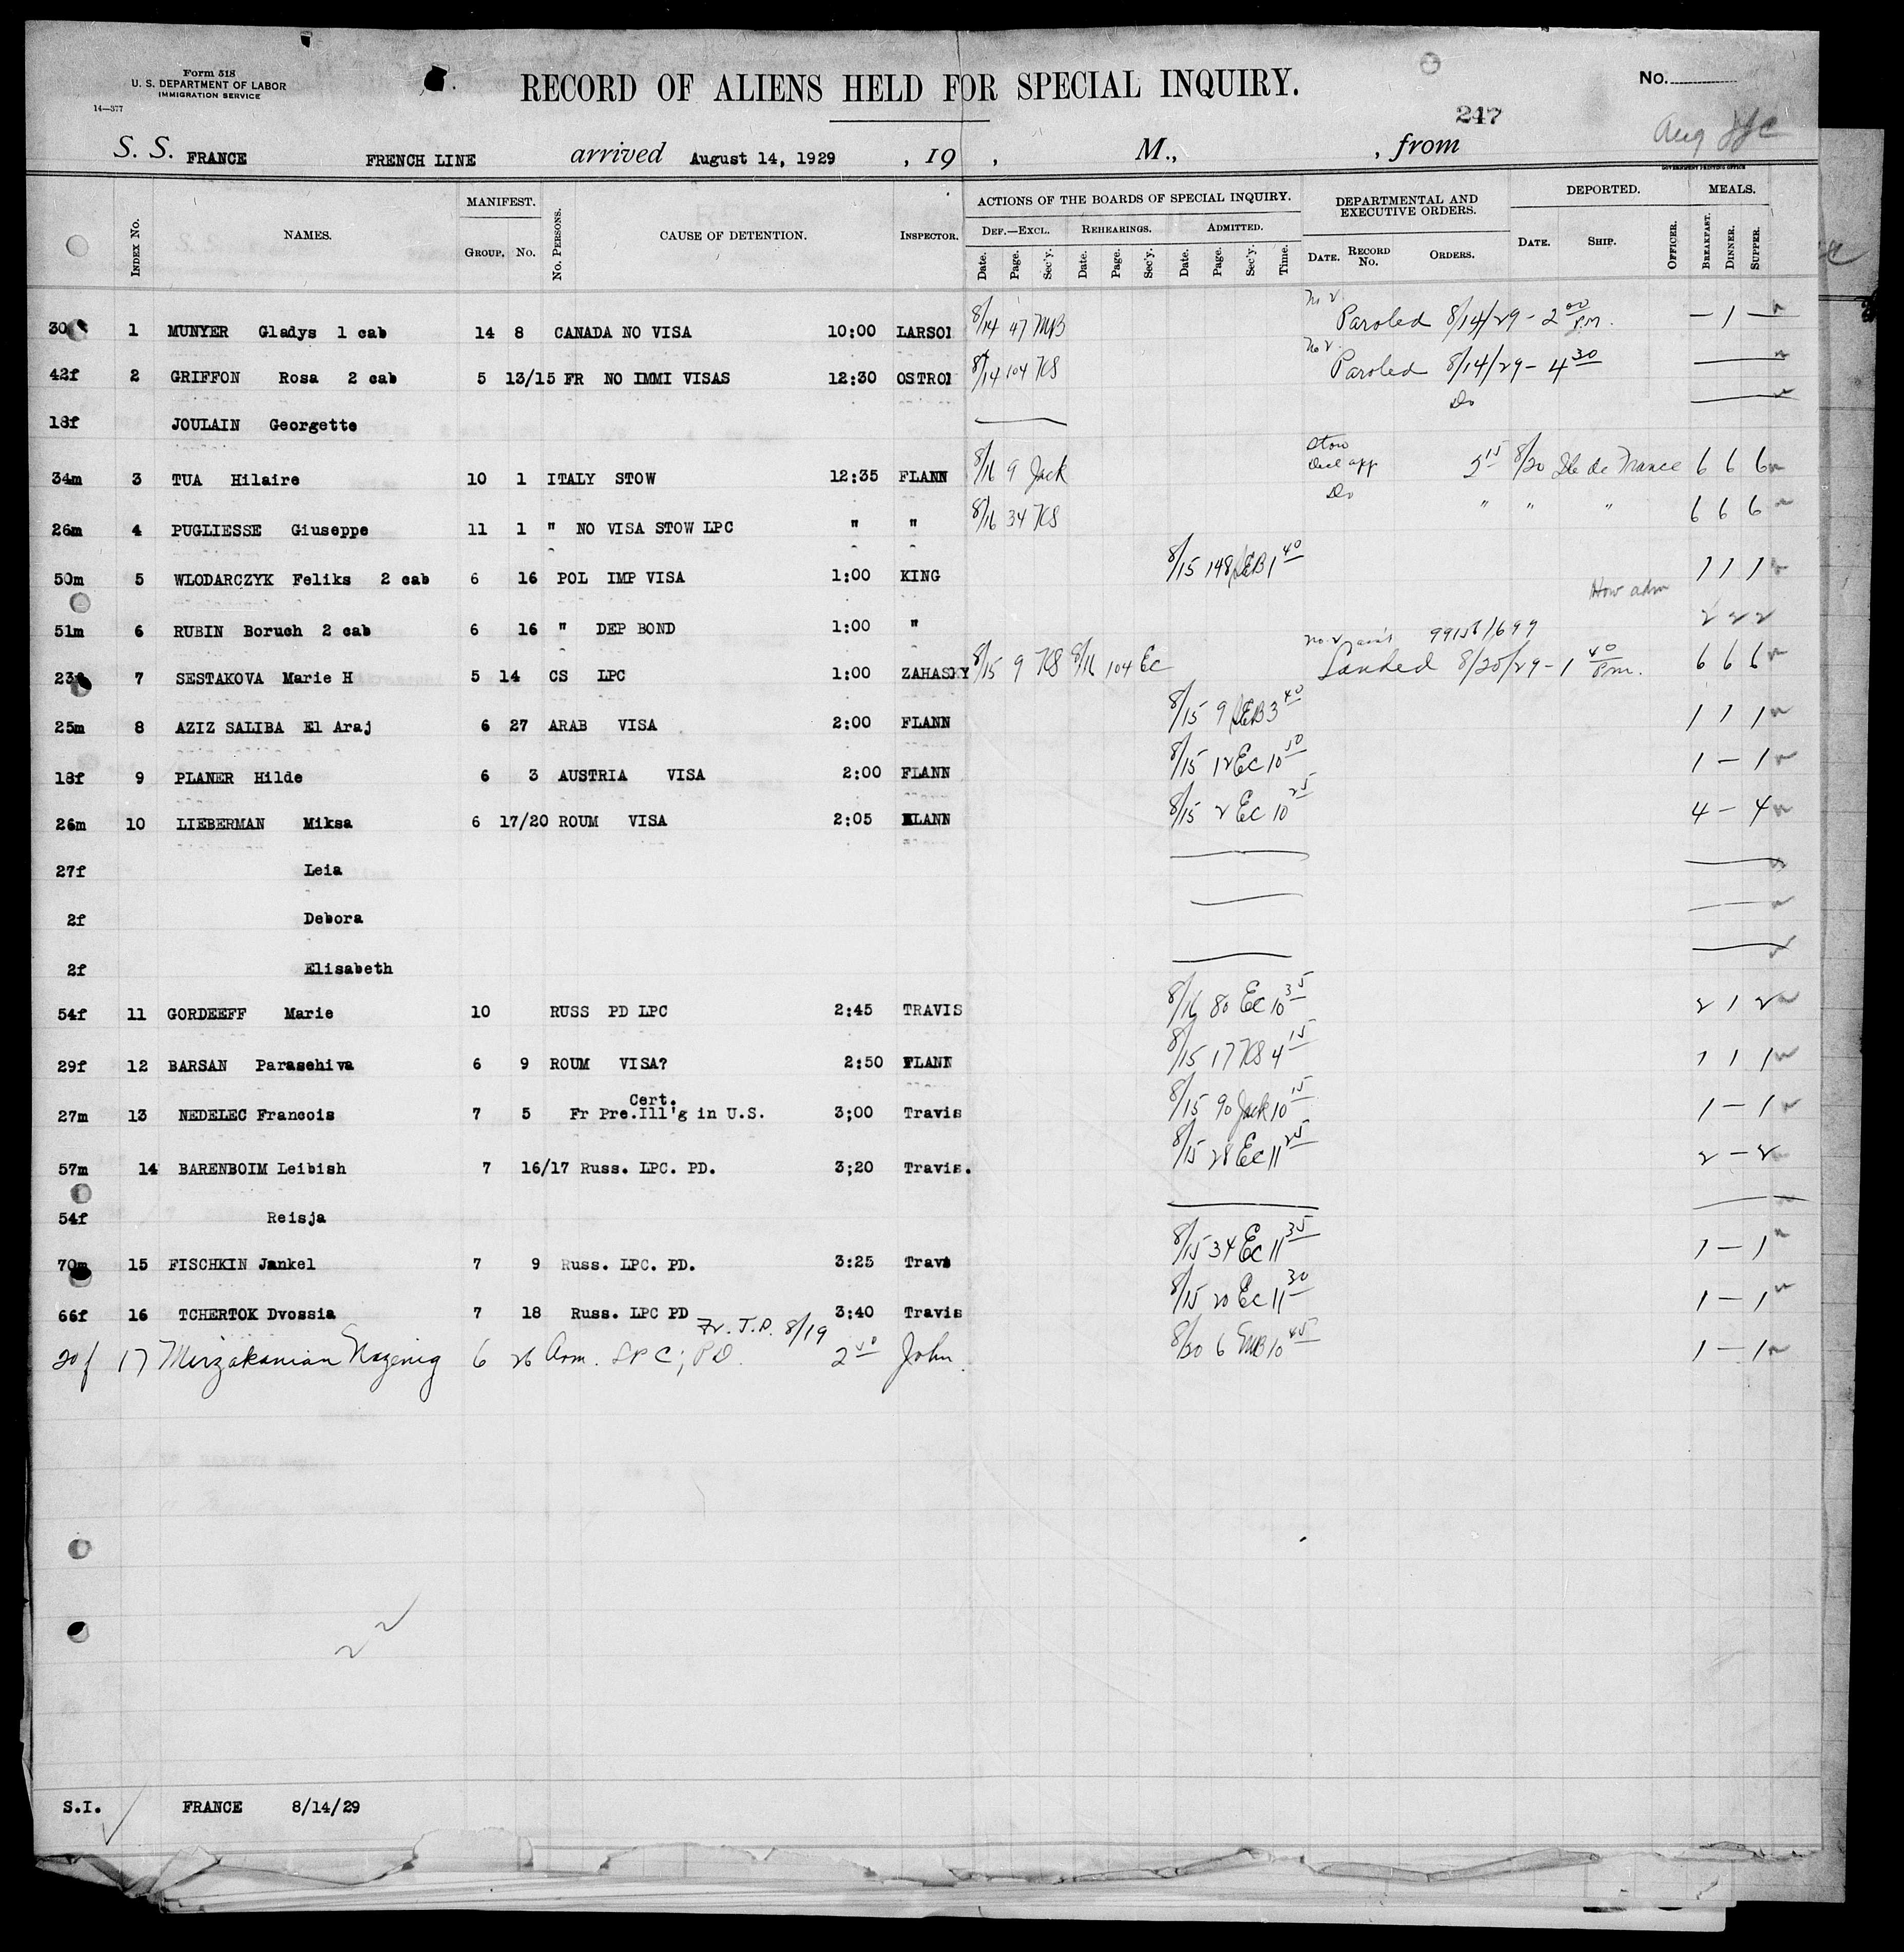 Form 518
U. S. DEPARTMENT OF LABOR
IMMIGRATION SERVICE
14—377
RECORD OF ALIENS HELD FOR SPECIAL INQUIRY.
No.
247
Aug
S. S. FRANCE FRENCH LINE arrived August 14, 1929 , 19 , M., , from
GOVERNMENT PRINTING OFFICE
Index No. NAMES. MANIFEST. Group. No. No. Persons. CAUSE OF DETENTION. Inspector. ACTIONS OF THE BOARDS OF SPECIAL INQUIRY. Def.—Excl. Date. Page. Sec'y. Rehearings. Date. Page. Sec'y. Admitted. Date. Page. Sec'y. Time. DEPARTMENTAL AND EXECUTIVE ORDERS. Date. Record No. Orders. DEPORTED. Date. Ship. Officer. MEALS. Breakfast. Dinner. Supper.
30 1 MUNYER Gladys 1 cab 14 8 CANADA NO VISA 10:00 LARSON 8/14 47 MB Paroled 8/14/29 - 2 00 P.M. — 1 —
42f 2 GRIFFON Rosa 2 cab 5 13/15 FR NO IMMI VISAS 12:30 OSTRO 8/14 104 KS No V. Paroled 8/14/29 - 4 30
18f JOULAIN Georgette Do
34m 3 TUA Hilaire 10 1 ITALY STOW 12:35 FLANN 8/16 9 Jack Stow 8/20 Ile de France 6 6 6
26m 4 PUGLIESSE Giuseppe 11 1 " NO VISA STOW LPC " " 8/16 34 KS Do " " " 6 6 6
50m 5 WLODARCZYK Feliks 2 cab 6 16 POL IMP VISA 1:00 KING 8/15 148 EB 1 40 1 1 1
How adm
51m 6 RUBIN Boruch 2 cab 6 16 " DEP BOND 1:00 " 2 2 2
23f 7 SESTAKOVA Marie H 5 14 CS LPC 1:00 ZAHASKY 8/15 9 KS 8/16 104 EC 99156/699 Landed 8/20/29 - 1 40 P.m. 6 6 6
25m 8 AZIZ SALIBA El Araj 6 27 ARAB VISA 2:00 FLANN 8/15 9 EB 3 40 1 1 1
18f 9 PLANER Hilde 6 3 AUSTRIA VISA 2:00 FLANN 8/15 12 EC 10 50 1 — 1
26m 10 LIEBERMAN Miksa 6 17/20 ROUM VISA 2:05 FLANN 8/15 2 EC 10 25 4 — 4
27f Leia
2f Debora
2f Elisabeth
54f 11 GORDEEFF Marie 10 RUSS PD LPC 2:45 TRAVIS 8/16 80 EC 10 35 2 1 2
29f 12 BARSAN Parasehiva 6 9 ROUM VISA? 2:50 FLANN 8/15 17 KS 4 15 1 1 1
27m 13 NEDELEC Francois 7 5 Fr Pre.Ill'g in U.S. Cert. 3;00 Travis 8/15 90 Jack 10 15 1 — 1
57m 14 BARENBOIM Leibish 7 16/17 Russ. LPC. PD. 3;20 Travis. 8/15 28 EC 11 25 2 — 2
54f Reisja
70m 15 FISCHKIN Jankel 7 9 Russ. LPC. PD. 3:25 Travs 8/15 34 EC 11 35 1 — 1
66f 16 TCHERTOK Dvossia 7 18 Russ. LPC PD 3:40 Travis 8/15 20 EC 11 30 1 — 1
Fr. T.D. 8/19
20f 17 Mirzakanian Nazenig 6 26 Arm. LPC; PD. 2 50 John 8/20 6 MB 10 45 1 — 1
22
S.I. FRANCE 8/14/29